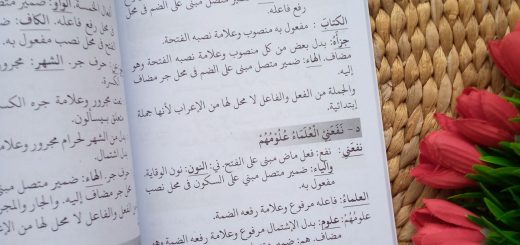 رفع فاعله.
الكتابَ: مفعول به منصوب وعلامة نصبه الفتحة.
جزأه: بدل بعض من كل منصوب وعلامة نصبه الفتحة وهو
مضاف. الهاء: ضمير متصل مبني على الضم في محل جر مضاف
إليه.
والجملة من الفعل والفاعل لا محل لها من الإعراب لأنها جملة
إبتدائية.
د - نَفَعَنِي الْعُلَمَاءُ عُلُومُهُمْ
نفعني: نفع: فعل ماض مبني على الفتح. في: النون: نون الوقاية.
والياء: ضمير متصل مبني على السكون في محل نصب
مفعول به.
العلماءُ: فاعله مرفوع وعلامة رفعه الضمة.
علومُهُمْ: علوم: بدل الإشتمال مرفوع وعلامة رفعه الضمة وهو
الواو: ضمير متصل مبني
محل رفع فاعله. الكاف:
في محل نصب مفعول به.
: حرف جر. الشهر: مجرور
مجرور وعلامة جره الكسـ
بيسألون.
حرف جر. الهاء: ضمير متصل
محل جر مضاف إليه. والجار والمجر
الفعل والفاعل لا محل لها من الإعراب